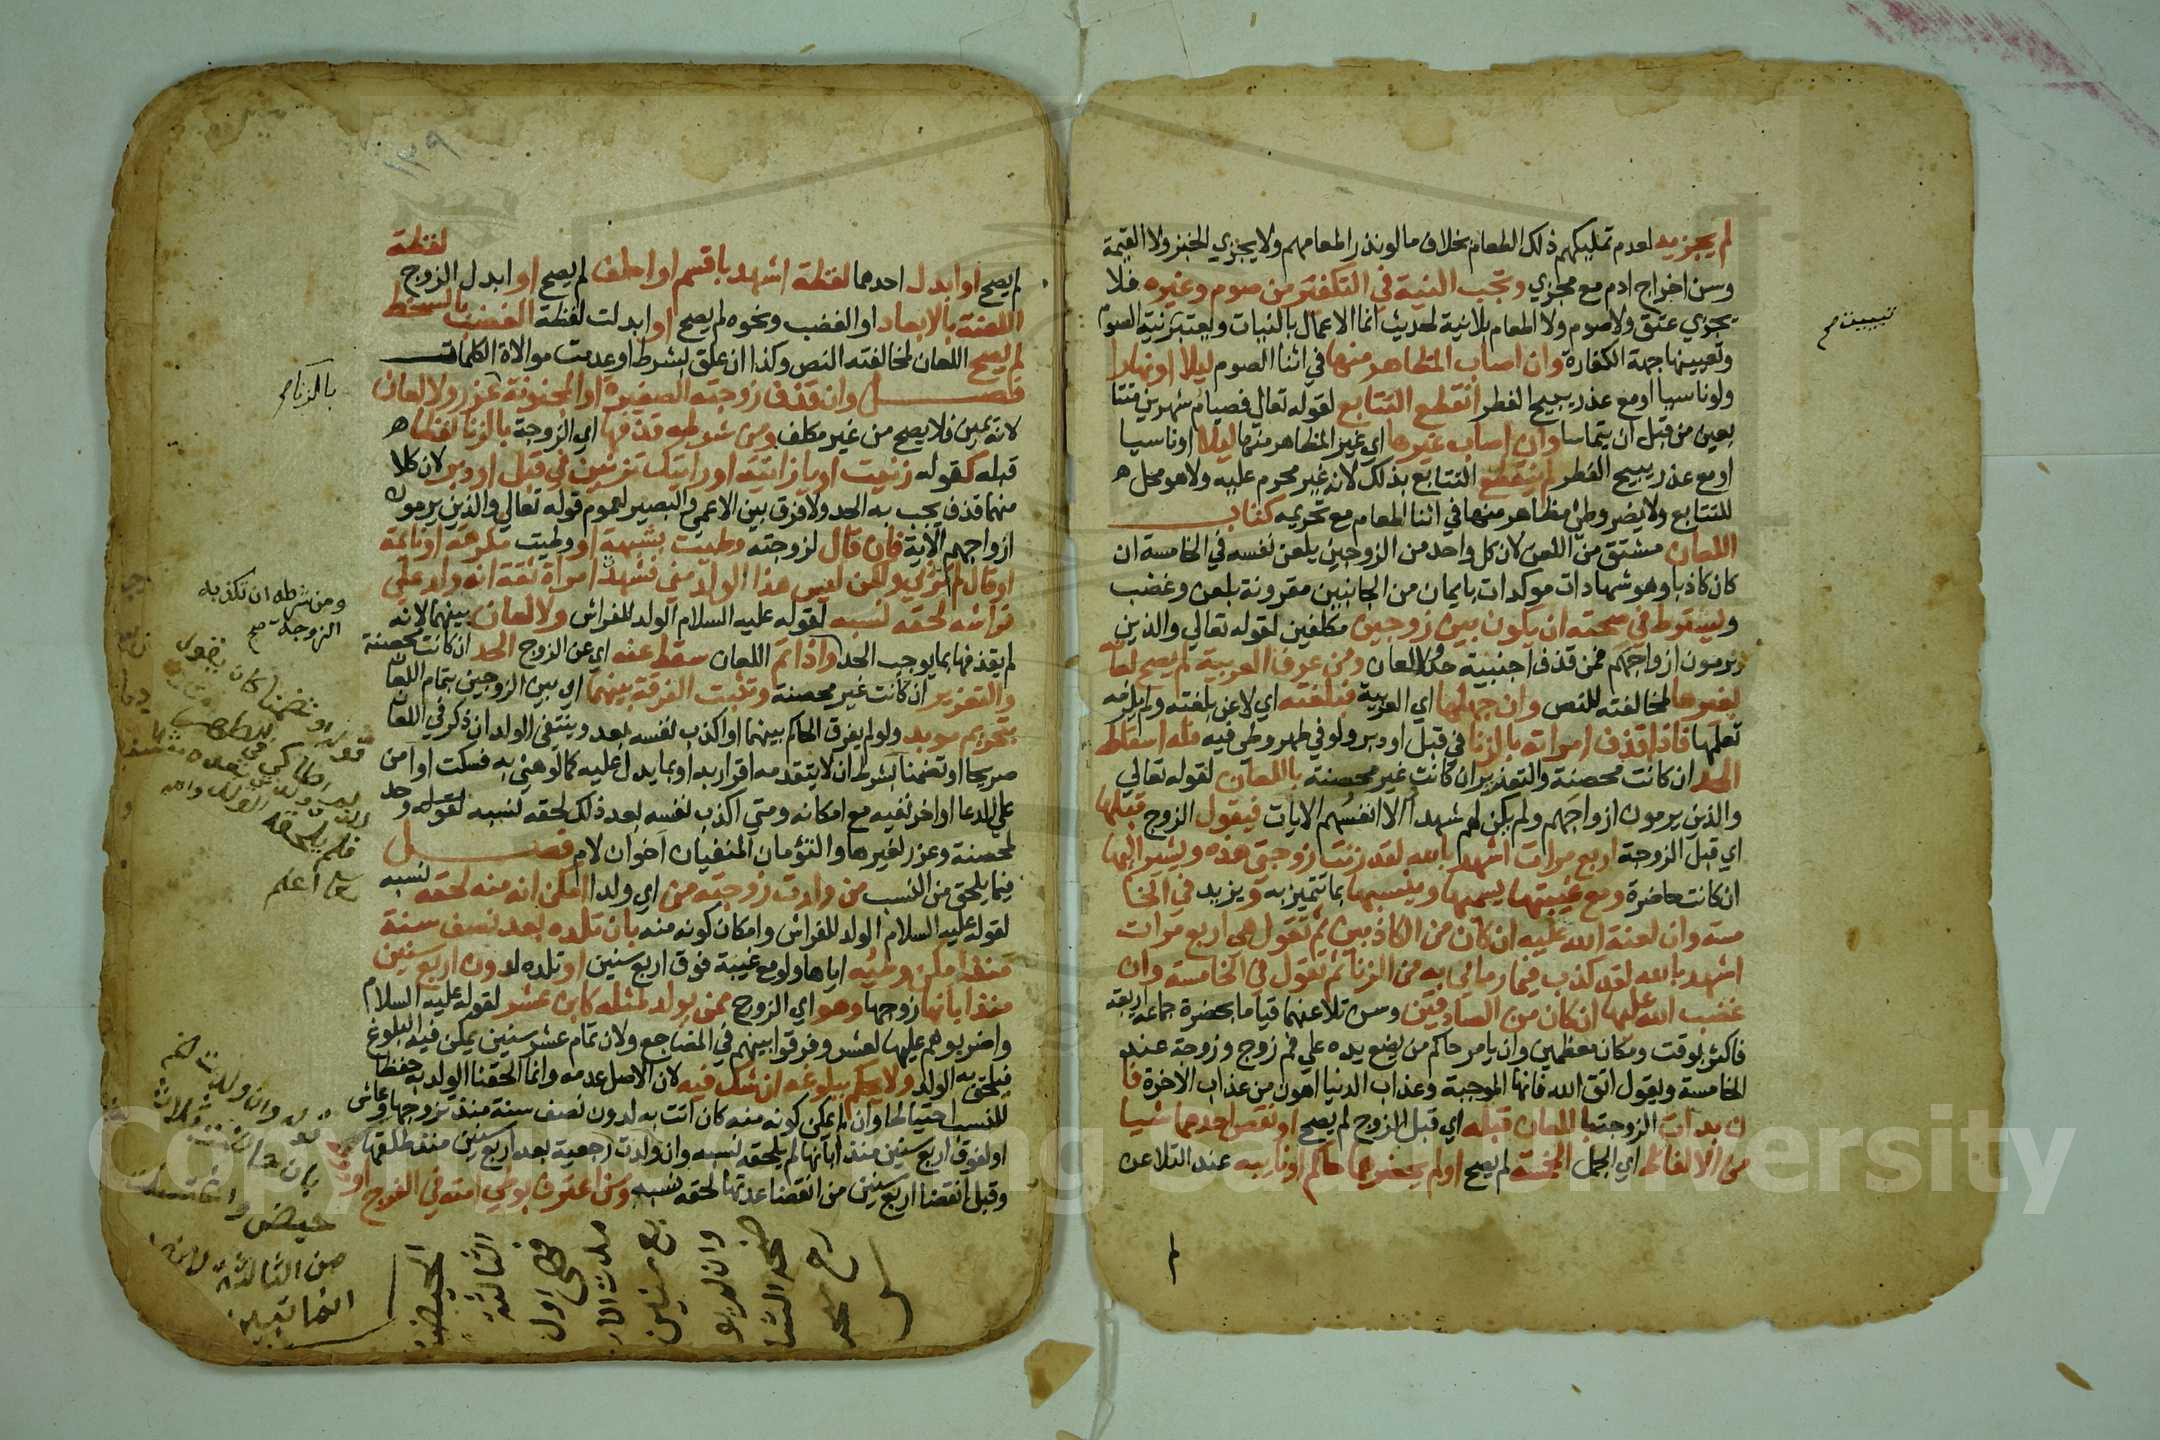 لم يجزيه لعدم تمليكهم ذلك الطعام بخلاف ما لو نذر اطعامهم ولا يجزي الخبز ولا القيمة
وسن اخراج ادم مع مجزي وتجب النية في التكفير من صوم وغيره فلا
يجزي عتق ولا صوم ولا اطعام بلا نية لحديث انما الاعمال بالنيات ويعتبر نية الصوم
وتعيينها جهة الكفارة وان اصاب المظاهر منها في اثنا الصوم ليلا او نهارا
ولو ناسيا او مع عذر يبيح الفطر انقطع التتابع لقوله تعالي فصيام شهرين متتا
بعين من قبل ان يتماسا وان اصاب غيرها اي غير المظاهر منها ليلا او ناسيا
او مع عذر يبيح الفطر لم ينقطع التتابع بذلك لانه غير محرم عليه ولا هو محل ه
للتتابع ولا يضر وطئ مظاهر منها في اثنا اطعام مع تحريمه كتاب
اللعان مشتق من اللعن لان كل واحد من الزوجين يلعن نفسه في الخامسة ان
كان كاذبا وهو شهادات موكدات بايمان من الجانبين مقرونة بلعن وغضب
ويشترط في صحته ان يكون بين زوجين مكلفين لقوله تعالي والذين
يرمون ازواجهم فمن قذف اجنبية حد ولا لعان ومن عرف العربية لم يصح لعانه
بغيرها لمخالفته للنص وان جهلها اي العربية فبلغته اي لاعن بلغته ولم يلزمه
تعلمها فاذا قذف امراته بالزنا في قبل او دبر ولو في طهر وطئ فيه فله اسقاط
الحد ان كانت محصنة والتعزير ان كانت غير محصنة باللعان لقوله تعالي
والذين يرمون ازواجهم ولم يكن لهم شهدا الا انفسهم الايات فيقول الزوج قبلها
اي قبل الزوجة اربع مرات اشهد بالله لقد زنت زوجتي هذه ويشير اليها
ان كانت حاضرة ومع غيبتها يسميها وينسبها بما تتميز به ويزيد في الخا
مسة وان لعنة الله عليه ان كان من الكاذبين ثم تقول هي اربع مرات
اشهد بالله لقد كذب فيما رماني به من الزنا ثم تقول في الخامسة وان
غضب الله عليها ان كان من الصادقين وسن تلاعنهما قياما بحضرة جماعة اربعة
فاكثر بوقت ومكان معظمين وان يامر حاكم من يضع يده علي فم زوج وزوجة عند
الخامسة ويقول اتق الله فانها الموجبة وعذاب الدنيا اهون من عذاب الاخرة فا
ن بدات الزوجة باللعان قبله اي قبل الزوج لم يصح او نقص احدهما شيا
من الالفاظ اي الجمل الخمسة لم يصح او لم يحضرها حاكم او نايبه عند التلاعن
تبييت صح
١٣٩
لفظة
لم يصح او ابدل احدهما لفظة اشهد باقسم او احلف لم يصح او ابدل الزوج
اللعنة بالابعاد او الغضب ونحوه لم يصح او ابدلت لفظة الغضب بالسخط
لم يصح اللعان لمخالفته النص وكذا ان علق بشرط او عدمت موالاة الكلمات
فصل وان قذف زوجته الصغيرة او المجنونة عزر ولا لعان
لانه يمين فلا يصح من غير مكلف ومن شرطه قذفها اي الزوجة بالزنا لفظا ه
قبله كقوله زنيت او يا زانية او رايتك تزنين في قبل او دبر لان كلا
منهما قذف يجب به الحد ولا فرق بين الاعمي والبصير لعموم قوله تعالي والذين يرمون
ازواجهم الاية فان قال لزوجته وطيت بشبهة او وطيت مكرهة او نايمة
او قال لم تزني ولكن ليس هذا الولد مني فشهدت امراة ثقة انه ولد علي
فراشه لحقه نسبه لقوله عليه السلام الولد للفراش ولا لعان بينهما لانه
لم يقذفها بما يوجب الحد واذا تم اللعان سقط عنه اي عن الزوج الحد ان كانت محصنة
والتعزير ان كانت غير محصنة وتثبت الفرقة بينهما اي بين الزوجين بتمام اللعان
بتحريم موبد ولو لم يفرق الحاكم بينهما او اكذب نفسه بعد وينتفي الولد ان ذكر في اللعان
صريحا او تضمنا بشرط ان لا يتقدمه اقرار به او بما يدل عليه كما لو هني به فسكت او امن
علي الدعا او اخر نفيه مع امكانه ومتي اكذب نفسه بعد ذلك لحقه نسبه لقوله وحد
لمحصنة وعزر لغيرها والتوءمان المنفيان اخوان لام فصل
فيما يلحق من النسب من ولدت زوجته من اي ولدا امكن انه منه لحقه نسبه
لقوله عليه السلام الولد للفراش وامكان كونه منه بان تلده بعد نصف سنة
منذ امكن وطئه اياها ولو مع غيبة فوق اربع سنين او تلده لدون اربع سنين
منذ ابانها زوجها وهو اي الزوج ممن يولد لمثله كابن عشر لقوله عليه السلام
واضربوهم عليها لعشر وفرقوا بينهم في المضاجع ولان تمام عشر سنين يمكن فيه البلوغ
فيلحق به الولد ولا يحكم ببلوغه ان شك فيه لان الاصل عدمه وانما الحقنا الولد به حفظا
للنسب احتياطا وان لم يمكن كونه منه كان اتت به لدون نصف سنة منذ تزوجها وعاش
او لفوق اربع سنين منذ ابانها لم يلحقه نسبه وان ولدت رجعية بعد اربع سنين منذ طلقها
وقبل انقضا اربع سنين من انقضا عدتها لحقه نسبه ومن اعترف بوطي امته في الفرج او
بالزنا صح
ومن شرطه ان تكذبه
الزوجة صح
قوله او تضمنا كان يقول
فلم يلحقه الولد والله
اعلم
قوله وان ولدت الخ
بان حاضت
حيض وانقضت
من الثالثة
الحيضة
الثالثة
اول
سنين
وان لم
Copyright © King Saud University